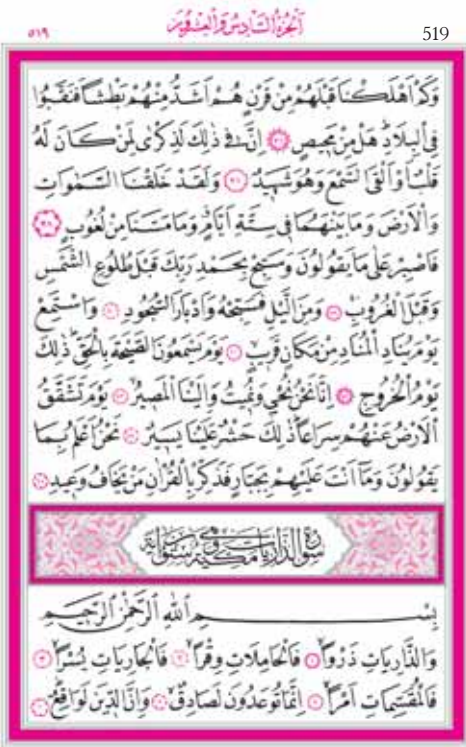 ٥١٩ اَلْجُزْءُ السَّادِسُ وَالْعِشْرُونَ 519
وَكَمْ اَهْلَكْنَا قَبْلَهُمْ مِنْ قَرْنٍ هُمْ اَشَدُّ مِنْهُمْ بَطْشًا فَنَقَّبُوا
فِي الْبِلَادِ هَلْ مِنْ مَحِيصٍ ﴿٣٦﴾ اِنَّ فِي ذٰلِكَ لَذِكْرٰى لِمَنْ كَانَ لَهُ
قَلْبٌ اَوْ اَلْقَى السَّمْعَ وَهُوَ شَهِيدٌ ﴿٣٧﴾ وَلَقَدْ خَلَقْنَا السَّمٰوَاتِ
وَالْاَرْضَ وَمَا بَيْنَهُمَا فِي سِتَّةِ اَيَّامٍ وَمَا مَسَّنَا مِنْ لُغُوبٍ ﴿٣٨﴾
فَاصْبِرْ عَلٰى مَا يَقُولُونَ وَسَبِّحْ بِحَمْدِ رَبِّكَ قَبْلَ طُلُوعِ الشَّمْسِ
وَقَبْلَ الْغُرُوبِ ﴿٣٩﴾ وَمِنَ الَّيْلِ فَسَبِّحْهُ وَاَدْبَارَ السُّجُودِ ﴿٤٠﴾ وَاسْتَمِعْ
يَوْمَ يُنَادِ الْمُنَادِ مِنْ مَكَانٍ قَرِيبٍ ﴿٤١﴾ يَوْمَ يَسْمَعُونَ الصَّيْحَةَ بِالْحَقِّ ذٰلِكَ
يَوْمُ الْخُرُوجِ ﴿٤٢﴾ اِنَّا نَحْنُ نُحْيِي وَنُمِيتُ وَاِلَيْنَا الْمَصِيرُ ﴿٤٣﴾ يَوْمَ تَشَقَّقُ
الْاَرْضُ عَنْهُمْ سِرَاعًا ذٰلِكَ حَشْرٌ عَلَيْنَا يَسِيرٌ ﴿٤٤﴾ نَحْنُ اَعْلَمُ بِمَا
يَقُولُونَ وَمَا اَنْتَ عَلَيْهِمْ بِجَبَّارٍ فَذَكِّرْ بِالْقُرْاٰنِ مَنْ يَخَافُ وَعِيدِ ﴿٤٥﴾
سُورَةُ الذَّارِيَاتِ مَكِّيَّةٌ وَهِيَ سِتُّونَ اٰيَةً
بِسْمِ اللّٰهِ الرَّحْمٰنِ الرَّحِيمِ
وَالذَّارِيَاتِ ذَرْوًا ﴿١﴾ فَالْحَامِلَاتِ وِقْرًا ﴿٢﴾ فَالْجَارِيَاتِ يُسْرًا ﴿٣﴾
فَالْمُقَسِّمَاتِ اَمْرًا ﴿٤﴾ اِنَّمَا تُوعَدُونَ لَصَادِقٌ ﴿٥﴾ وَاِنَّ الدِّينَ لَوَاقِعٌ ﴿٦﴾